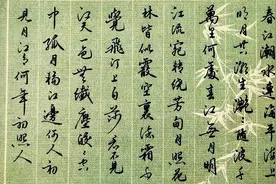 春江潮水連海平海上
明月共潮生灧〻隨波千
萬里何處春江無月明
江流宛轉繞芳甸月照花
林皆似霰空裏流霜不
覺飛汀上白沙看不見
江天一色無纖塵皎〻空
中孤月輪江邊何人初
見月江月何年初照人